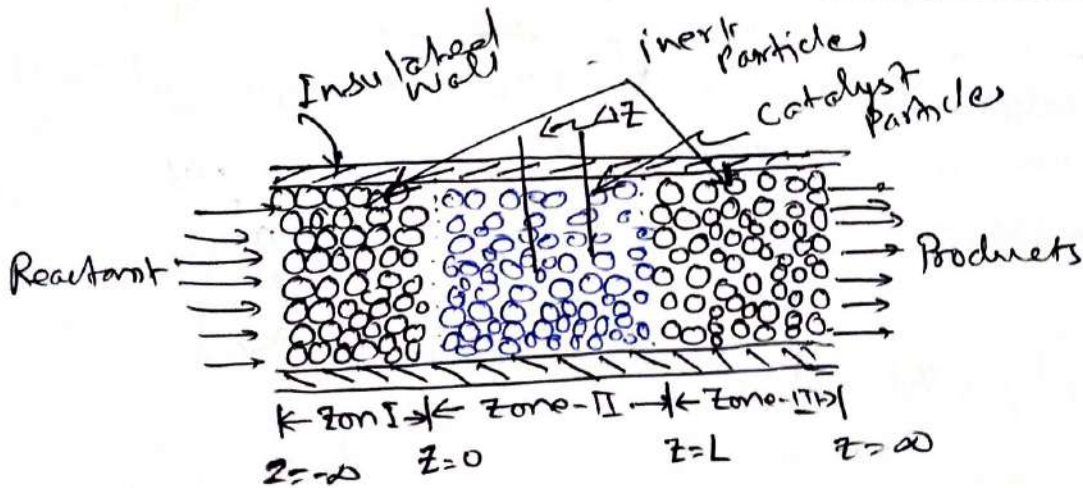 Insulated
Wall
inert
particles
Catalyst
Particles
ΔZ
Reactant
Products
Zon I
Zone-II
Zone-III
Z=-∞
Z=0
Z=L
Z=∞